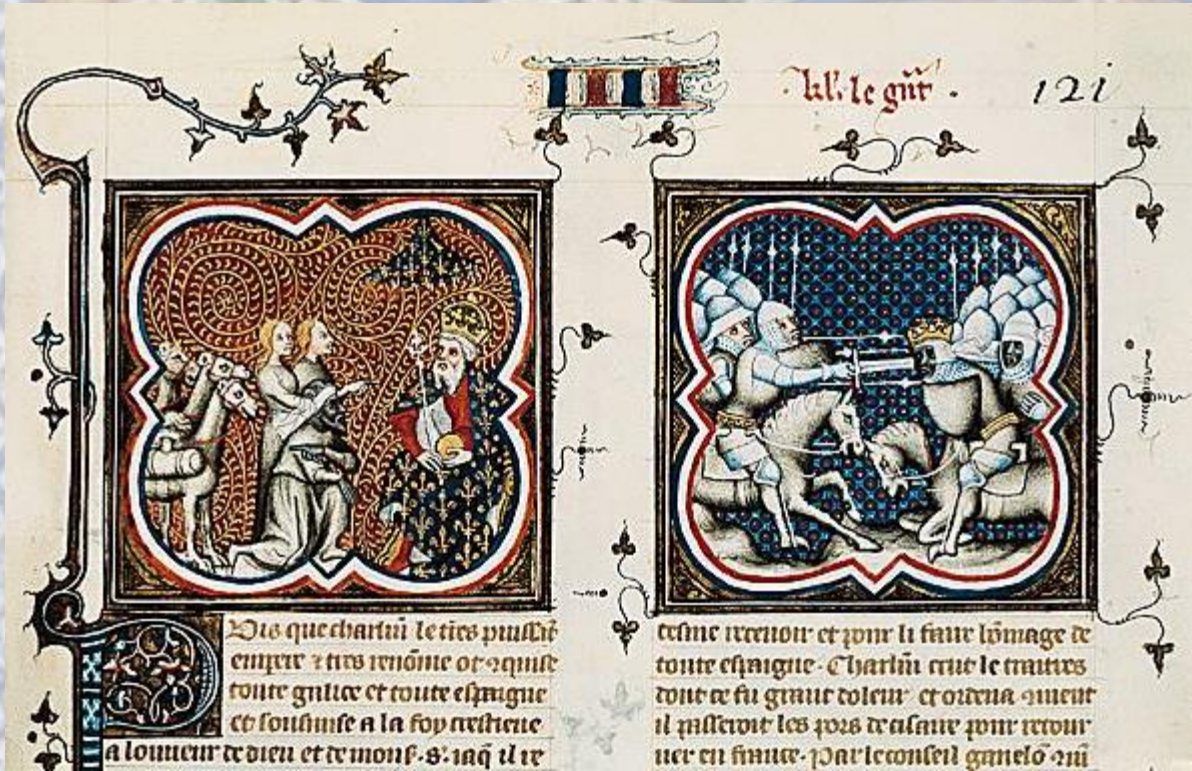 .kl'. le gñt. 121
PVis que charlm̃ le tres puissãt
empere ⁊ tres renõme ot ꝯquise
toute galice et toute espaigne
et sousmise a la foy crestiene
a lonneur de dieu et de mons. S. iaq̃ il re
tesme recevoir et pour li faire hõmage de
toute espaigne. Charlm̃ crut le traitres
dont ce fu grant doleur et ordena ꝯment
il passeroit les pors de cisaire pour retour
ner en france. Par le conseil ganelõ qui